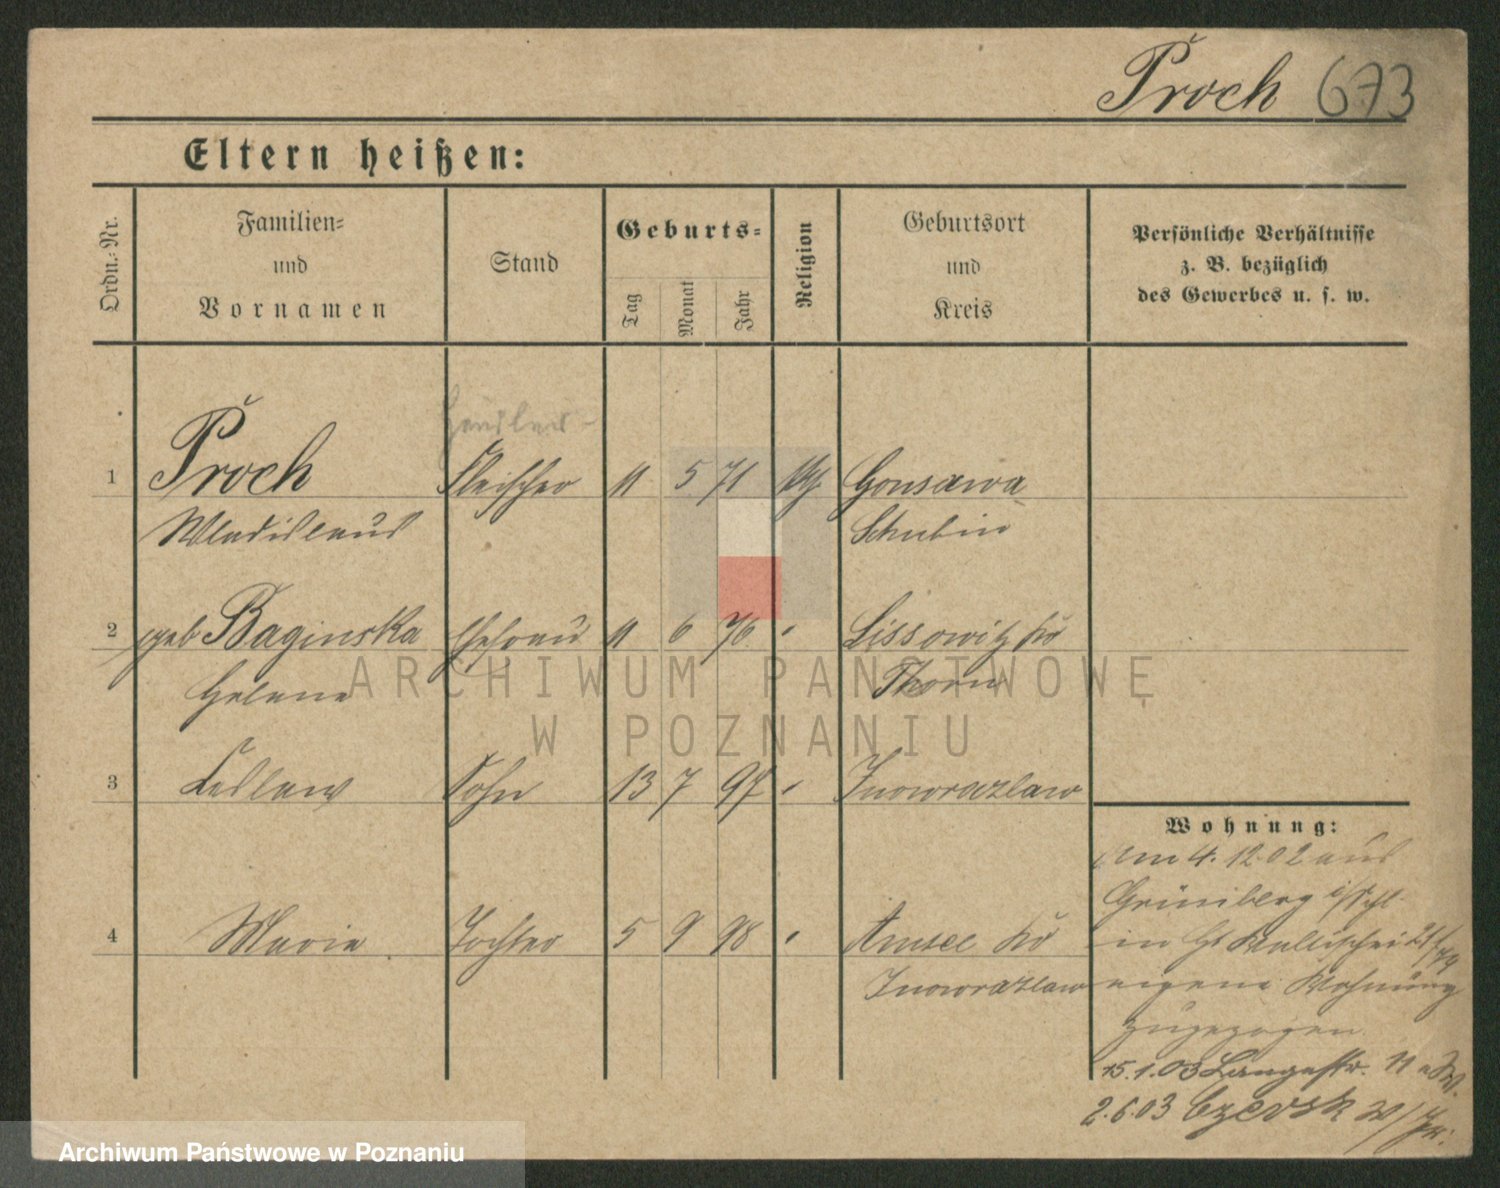 Proch 673
Eltern heißen:
Ordn.-Nr.
Familien- und Vornamen
Stand
Geburts-
Tag
Monat
Jahr
Religion
Geburtsort und Kreis
Persönliche Verhältnisse
z. B. bezüglich
des Gewerbes u. s. w.
Händler
1 Proch Fleischer 11 5 71 Gonsawa
Wladislaus Schubin
2 geb Baginska Ehefrau 11 6 76 Lissowitz Kr
Helene Thorn
3 Sohn 13 7 97 Inowrazlaw
4 Maria Tochter 5 9 98 Amsee Kr
Inowrazlaw
Wohnung:
Am 4.12.02 aus
Grünberg i/Schl.
in
eigene Wohnung
zugezogen
15.1.03 Langestr. 11
2.6.03 Czersk W/Pr.
ARCHIWUM PAŃSTWOWE
W POZNANIU
Archiwum Państwowe w Poznaniu